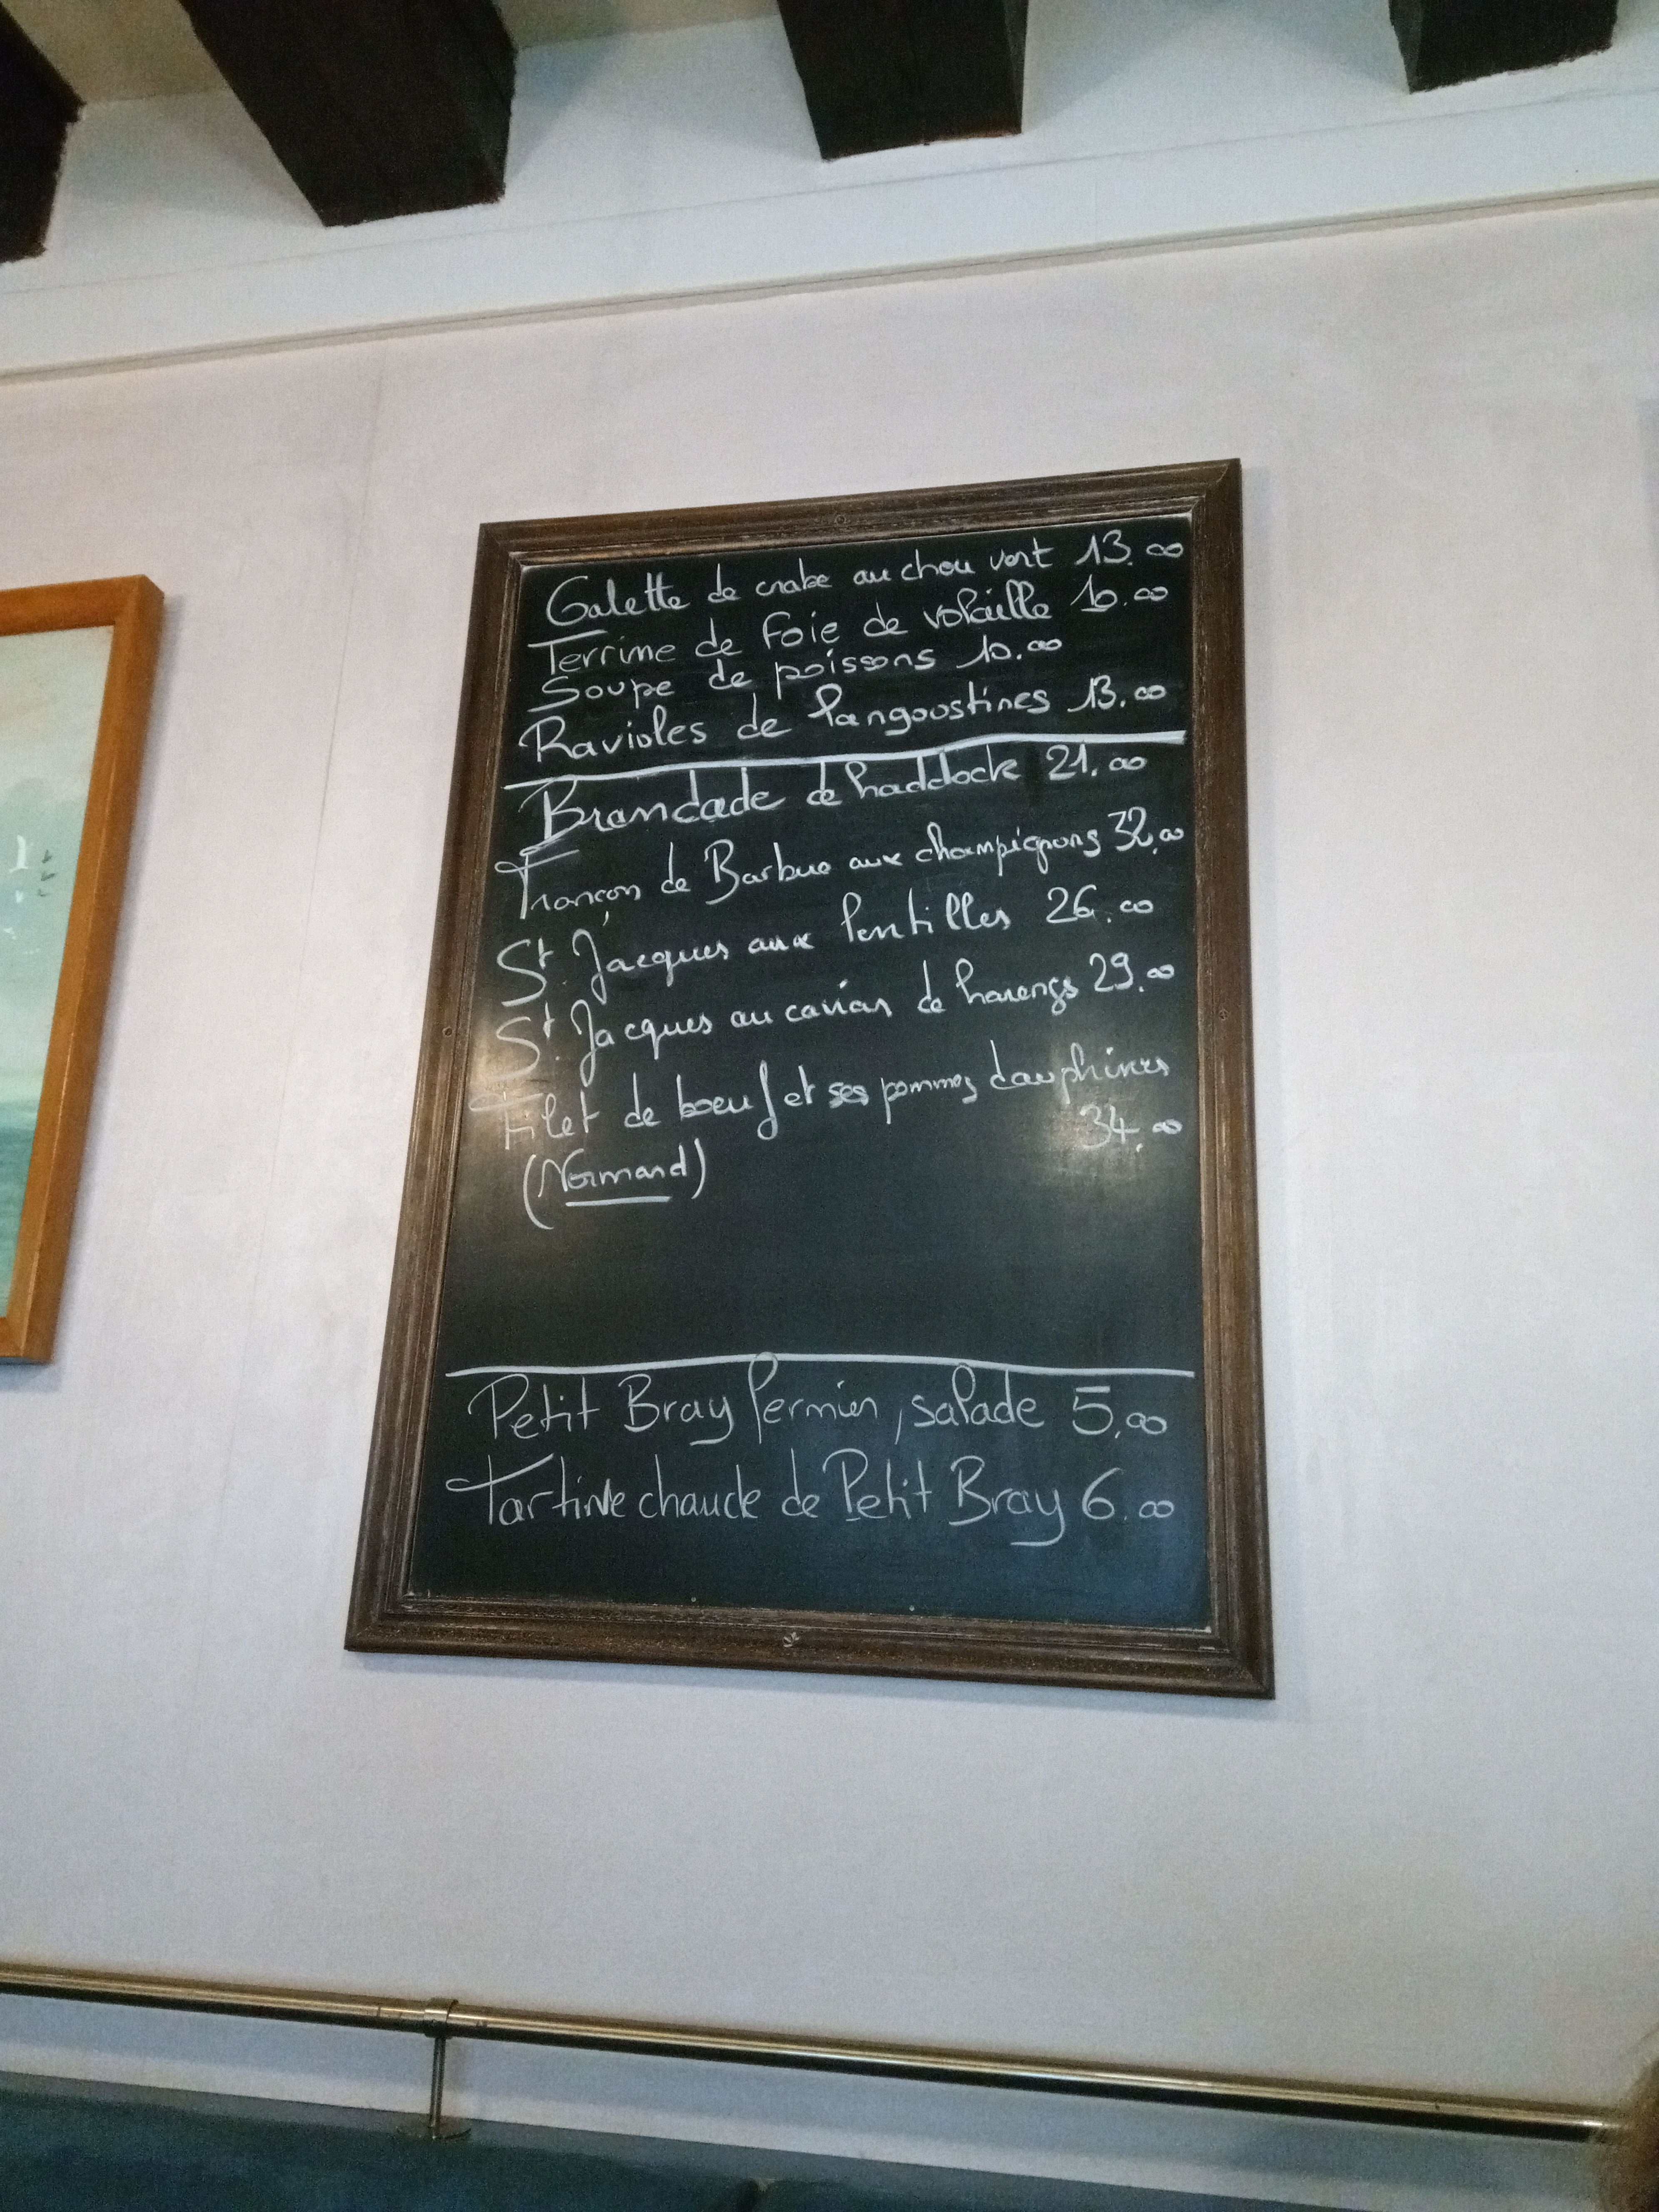 Galette de crabe au chou vert 13.00
Terrine de foie de volaille 10.00
Soupe de poissons 10.00
Ravioles de langoustines 13.00
Brandade de haddock 21.00
Trançon de Barbue aux champignons 32.00
St. Jacques aux lentilles 26.00
St. Jacques au caviar de harengs 29.00
Filet de boeuf et ses pommes dauphines
34.00
(Normand)
Petit Bray fermier, salade 5.00
Tartine chaude de Petit Bray 6.00